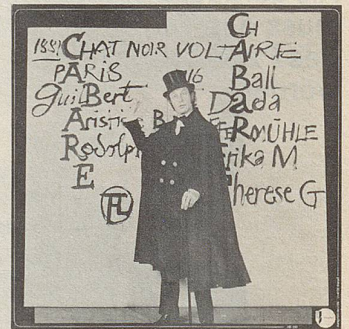 CH
1881 CHAT NOIR VOLTAIRE
PARIS 16 Ball
guilBert Dada
B ERMÜHLE
Rodolph Erika M
E Therese G